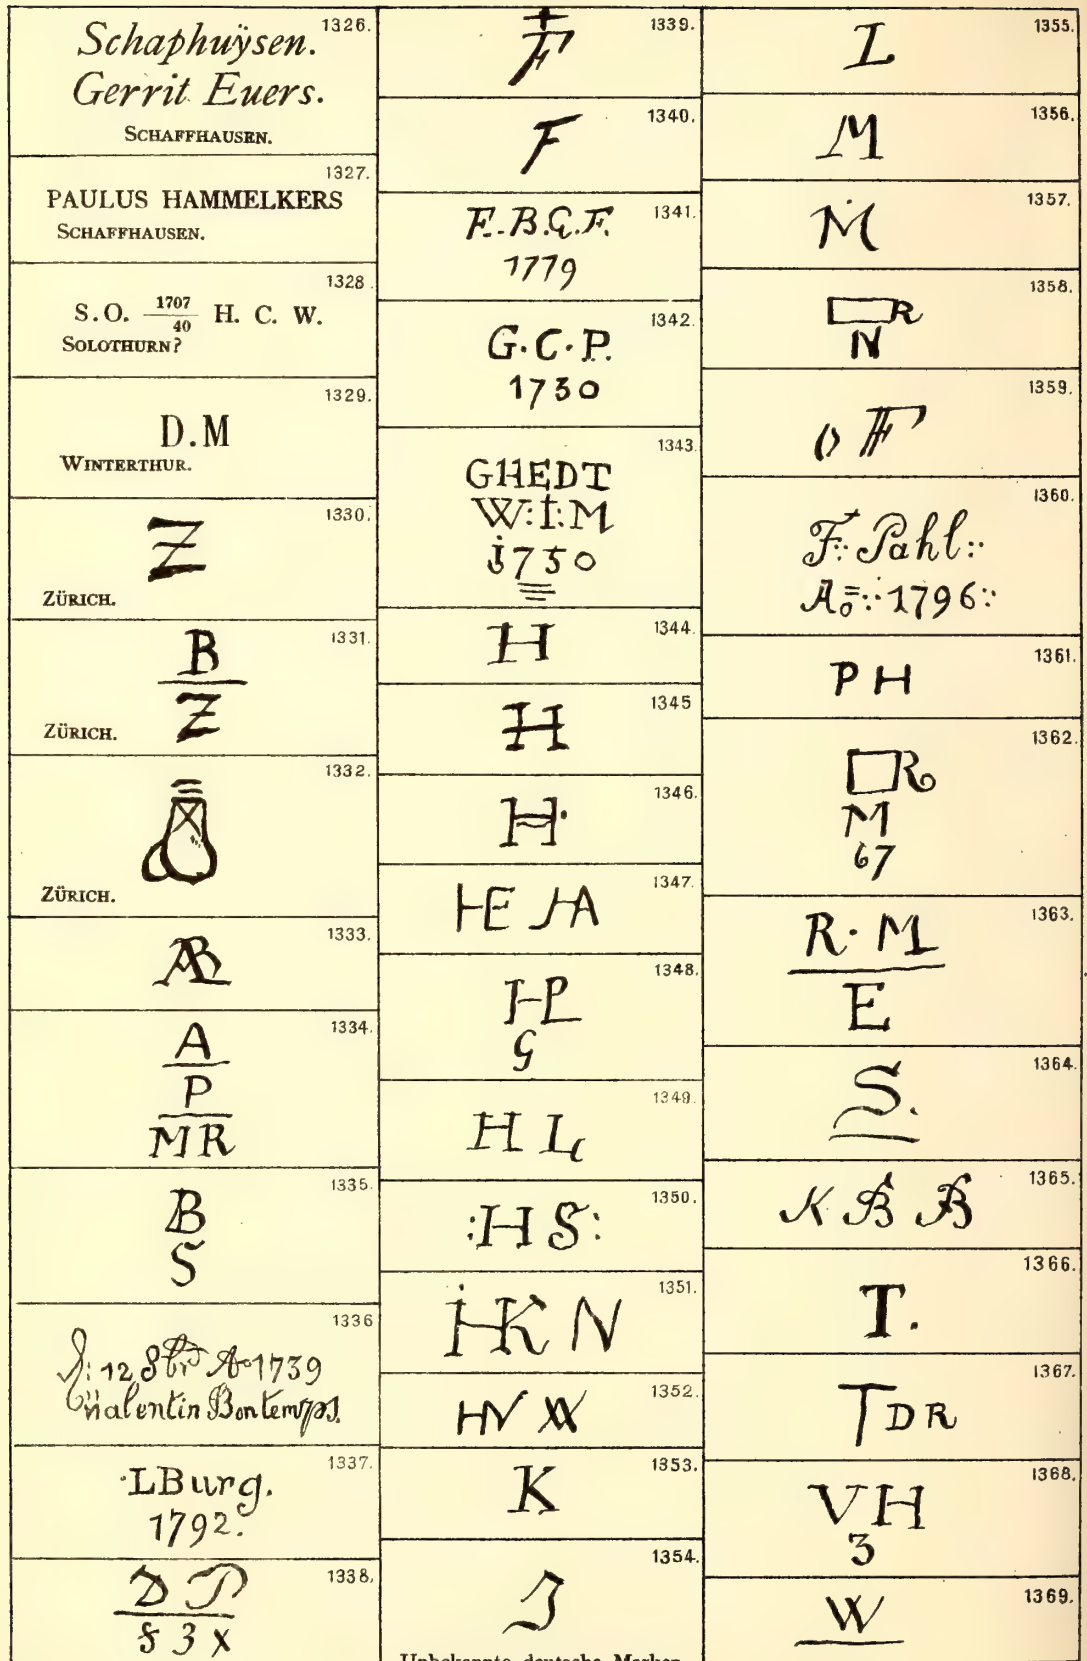 1326.
Schaphuÿsen.
Gerrit Euers.
SCHAFFHAUSEN.
1327.
PAULUS HAMMELKERS
SCHAFFHAUSEN.
1328.
S.O. 1707/40 H. C. W.
SOLOTHURN?
1329.
D.M
WINTERTHUR.
1330.
Z
ZÜRICH.
1331.
B
Z
ZÜRICH.
1332.
ZÜRICH.
1333.
AB
1334.
A
P
MR
1335.
B
S
1336
12 8br Ao 1739
Valentin Bontemps.
1337.
LBurg.
1792.
1338.
D P
8 3 x
1339.
F
1340.
F
1341.
E.B.G.F.
1779
1342.
G.C.P.
1730
1343.
GHEDT
W:I:M
1750
1344.
H
1345
H
1346.
H.
1347.
HE HA
1348.
HP
G
1349.
H L
1350.
:H S:
1351.
HK N
1352.
HV W
1353.
K
1354.
Unbekannte deutsche Marken.
1355.
L
1356.
M
1357.
M
1358.
R
N
1359.
1360.
F: Pahl::
Ao:: 1796::
1361.
P H
1362.
R
M
67
1363.
R. M
E
1364.
S.
1365.
K B B
1366.
T.
1367.
T D R
1368.
VH
3
1369.
W